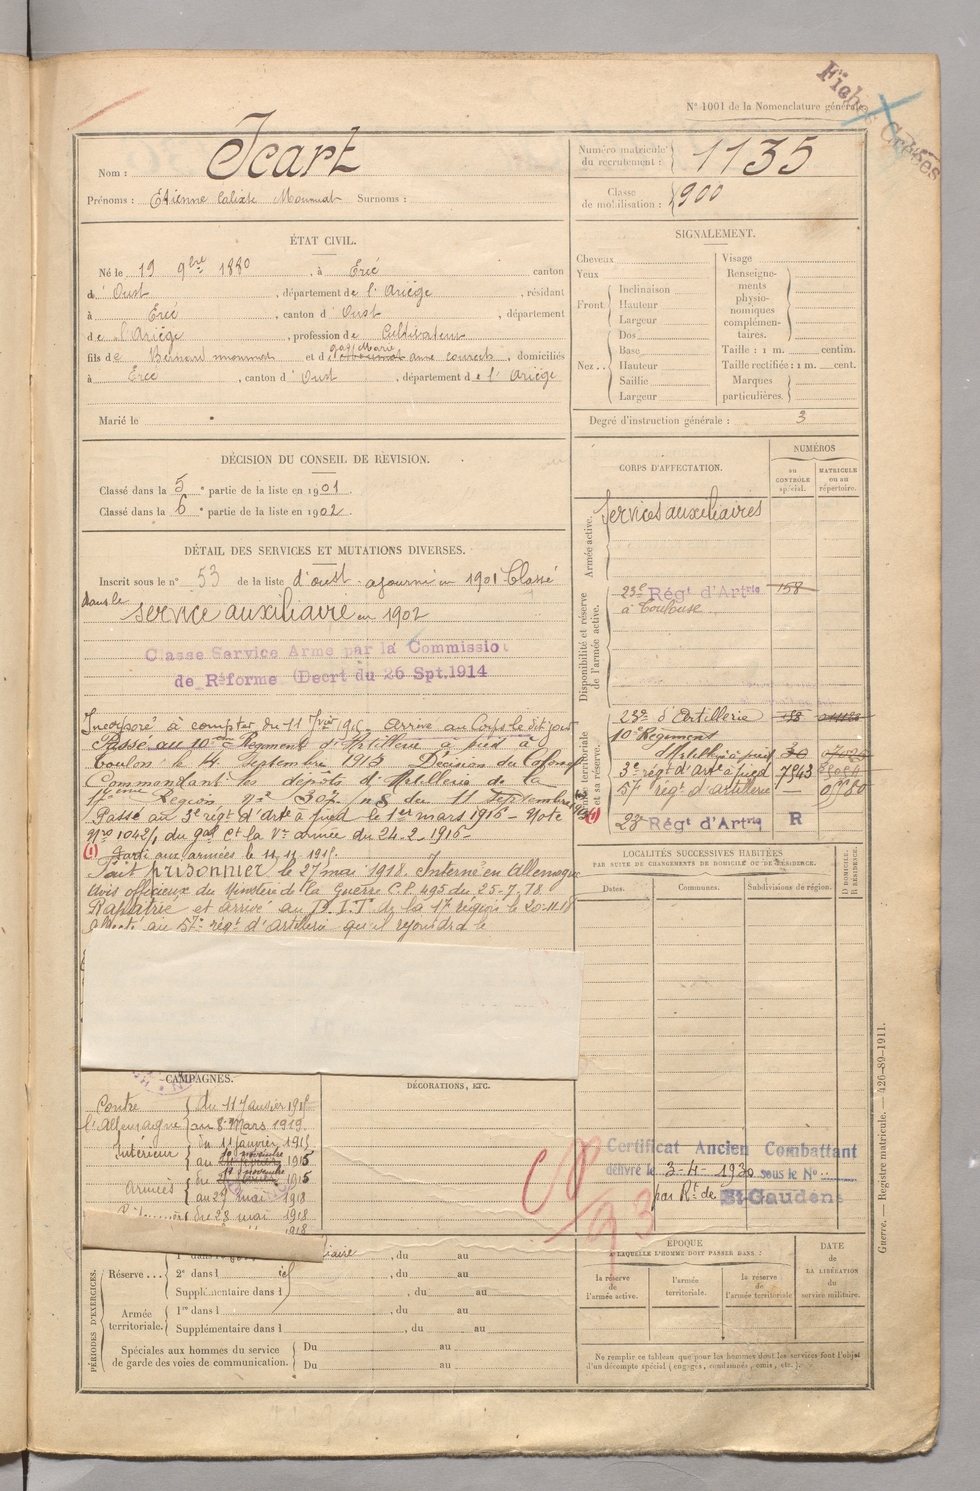 Fiches Croisées
N° 1001 de la Nomenclature générale.
Nom : Icart
Prénoms : Etienne Calixte Surnoms :
Numéro matricule du recrutement : 1135
Classe de mobilisation : 1900
ÉTAT CIVIL.
Né le 19 9bre 1880, à Ercé canton
d'Oust, département de l'Ariège, résidant
à Ercé, canton d'Oust, département
de l'Ariège, profession de Cultivateur
fils de Bernard et d anne, domiciliés
à Ercé, canton d'Oust, département de l'Ariège
Marié le
SIGNALEMENT.
Cheveux
Yeux
Front
Inclinaison
Hauteur
Largeur
Nez
Dos
Base
Hauteur
Saillie
Largeur
Visage
Renseignements physionomiques complémentaires.
Taille : 1 m. centim.
Taille rectifiée : 1 m. cent.
Marques particulières.
Degré d'instruction générale : 3
DÉCISION DU CONSEIL DE RÉVISION.
Classé dans la 5e partie de la liste en 1901.
Classé dans la 6e partie de la liste en 1902.
DÉTAIL DES SERVICES ET MUTATIONS DIVERSES.
Inscrit sous le n° 53 de la liste d'oust. ajourné en 1901. Classé
dans le
service auxiliaire en 1902
Classe Service Arme par la Commission
de Réforme (Decrt du 26 Spt.1914
Incorporé à compter du 11 Arrivé au Corps le dit jour
Passé au 10eme Régiment d'Artillerie à pied à
Toulon le 14 Septembre 1915 Décision du Colonel
Commandant les dépôts d'Artillerie de la
17eme Région du 11 Septembre
Passé au 3e régt d'arte à pied le 1er mars 1916 - Note
du gal Ct la Ve armée du 24.2.1916 -
(1) Parti aux armées le 11.11.1915.
Fait prisonnier le 27 mai 1918. Interné en Allemagne
avis officieux du Ministère de la Guerre C.P. 495 du 25.7.18
Rapatrié et arrivé au D.I.T. de la 17e région le 20.11.18
Affecté au 57e régt d'artillerie qu'il rejoindra le
CORPS D'AFFECTATION.
NUMÉROS
au CONTRÔLE spécial.
MATRICULE ou au répertoire.
Armée active.
Services auxiliaires
Disponibilité et réserve de l'armée active.
23e Régt d'Artrie 158
à Toulouse
Armée territoriale et sa réserve.
23e d'Artillerie
10e Régiment
d'Artillerie à pied
3e régt d'Arte à pied 7943
57e régt d'artillerie —
(1) 23e Régt d'Artrie R
LOCALITÉS SUCCESSIVES HABITÉES
PAR SUITE DE CHANGEMENTS DE DOMICILE OU DE RÉSIDENCE.
Dates. Communes. Subdivisions de région.
D. DOMICILE. R. RÉSIDENCE.
CAMPAGNES.
Contre l'Allemagne du 11 Janvier 1915
au 8 Mars 1919.
Intérieur du 11 janvier 1915
au 10 novembre 1915
Armées du 11 novembre 1915
au 27 mai 1918
du 28 mai 1918
1918
DÉCORATIONS, ETC.
CP
93
Certificat Ancien Combattant
délivré le 3-4-1930 sous le N°
par Rt de St Gaudens
PÉRIODES D'EXERCICES.
Réserve
1re dans l , du au
2e dans l , du au
Supplémentaire dans l , du au
Armée territoriale.
1re dans l , du au
Supplémentaire dans l , du au
Spéciales aux hommes du service de garde des voies de communication.
Du au
Du au
ÉPOQUE
À LAQUELLE L'HOMME DOIT PASSER DANS :
la réserve de l'armée active.
l'armée territoriale.
la réserve de l'armée territoriale
DATE de LA LIBÉRATION du service militaire.
Ne remplir ce tableau que pour les hommes dont les services font l'objet
d'un décompte spécial (engagés, condamnés, omis, etc.).
Guerre. — Registre matricule. — 426-89-1911.